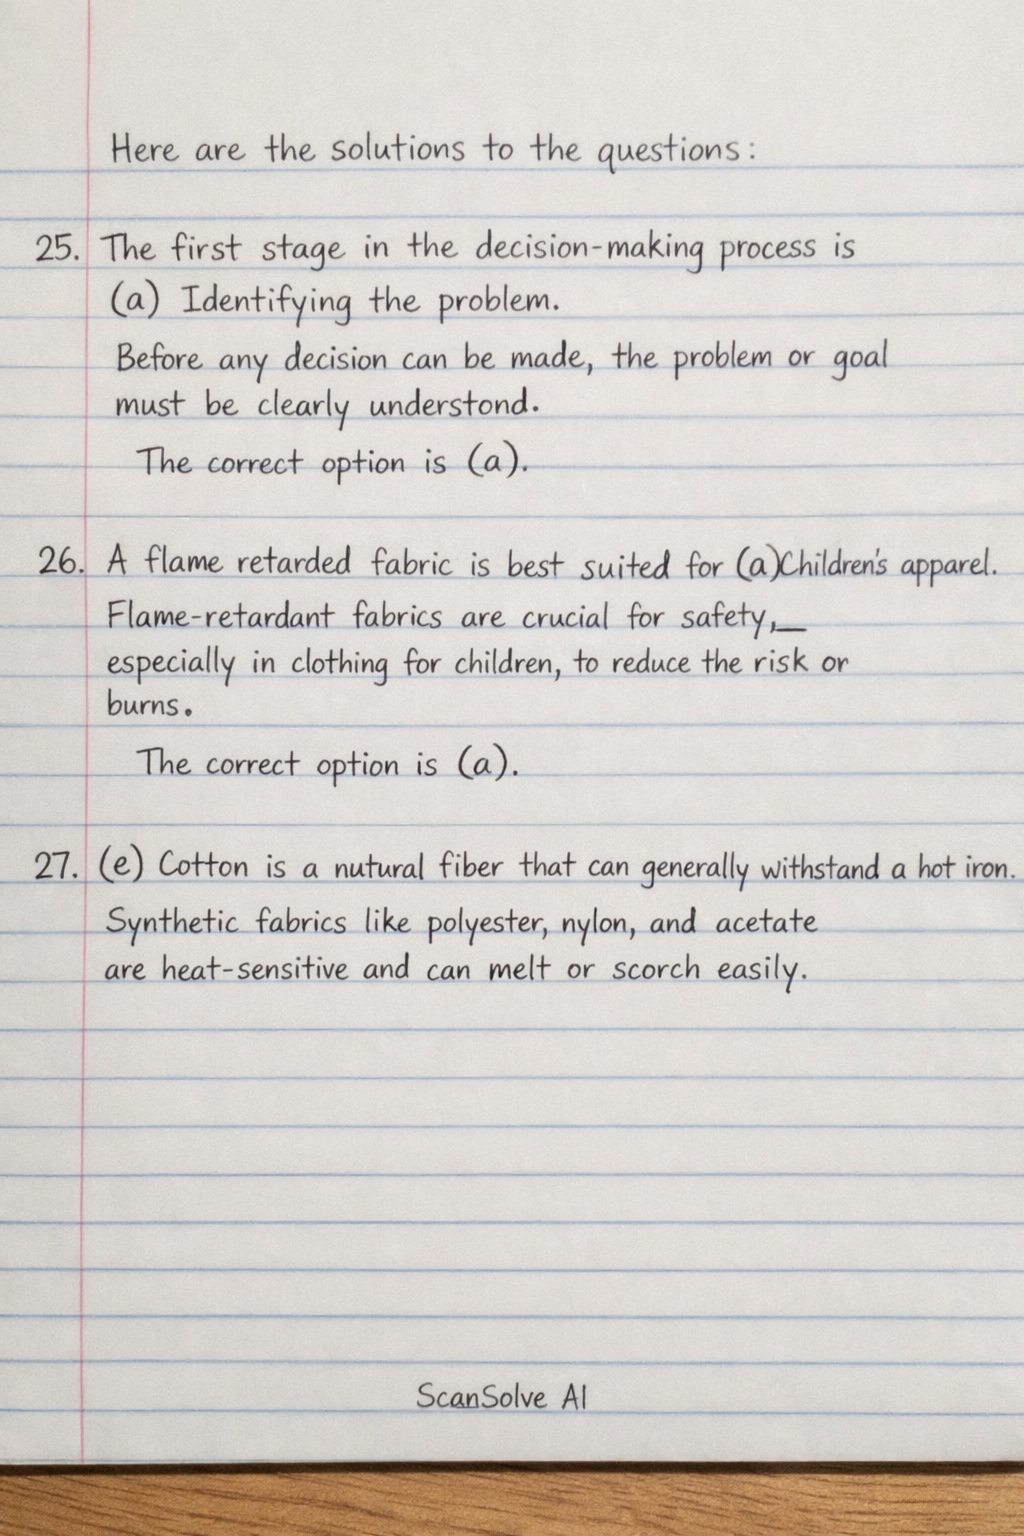 Here are the solutions to the questions:
25. The first stage in the decision-making process is
(a) Identifying the problem.
Before any decision can be made, the problem or goal
must be clearly understond.
The correct option is (a).
26. A flame retarded fabric is best suited for (a)Children's apparel.
Flame-retardant fabrics are crucial for safety,
especially in clothing for children, to reduce the risk or
burns.
The correct option is (a).
27. (e) Cotton is a nutural fiber that can generally withstand a hot iron.
Synthetic fabrics like polyester, nylon, and acetate
are heat-sensitive and can melt or scorch easily.
ScanSolve AI